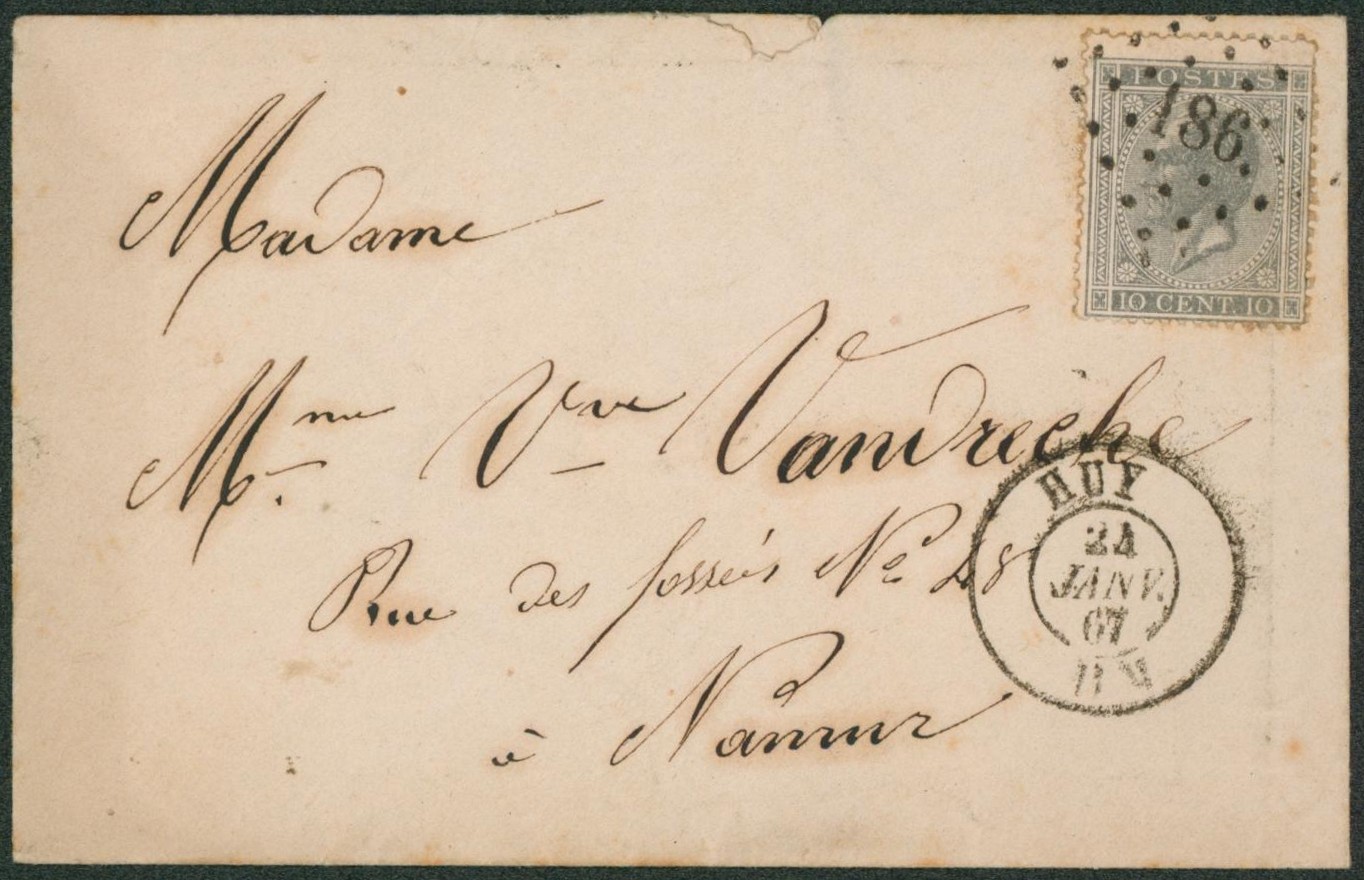 POSTES
186
10 CENT. 10
Madame
Mme Vve Vandreche
HUY
24
JANV.
67
Rue des fossés No 28
à Namur